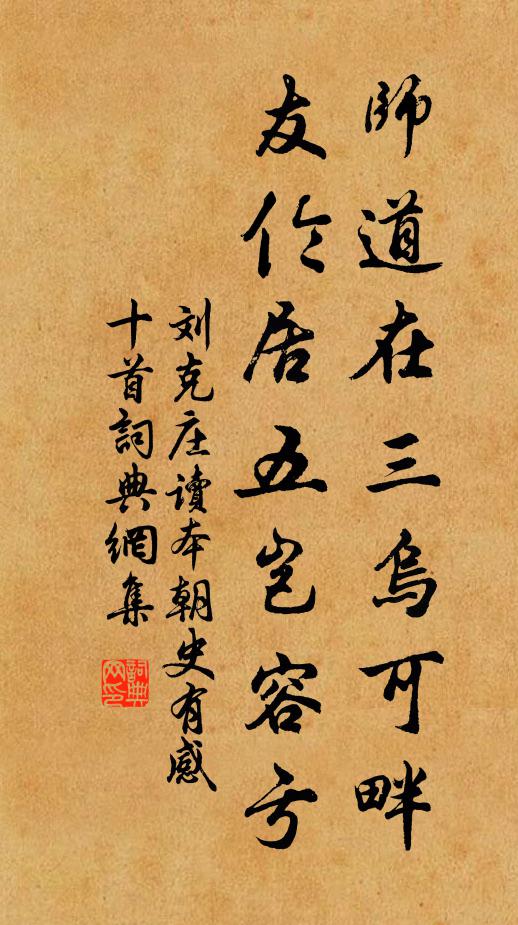 師道在三烏可畔
友伦居五岂容亏
刘克庄讀本朝史有感
十首詞典網集
詞典
网印